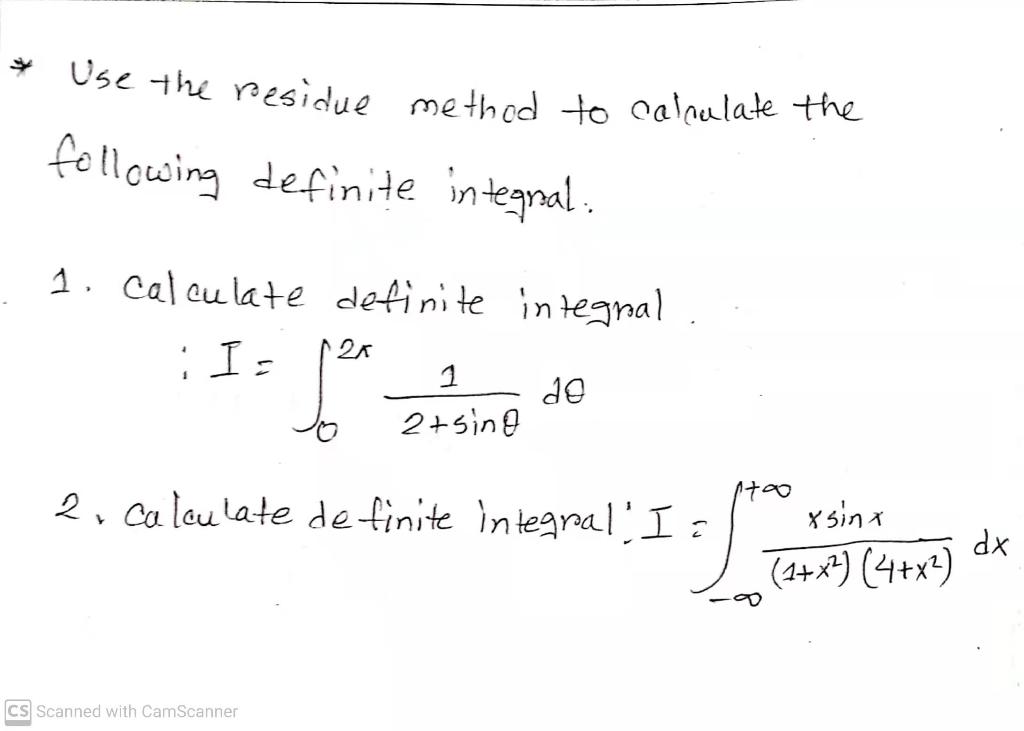 * Use the residue method to calculate the
following definite integral.
1. Calculate definite integral.
: I = ∫₀^{2π} 1/(2+sinθ) dθ
2. Calculate definite integral: I = ∫_{-∞}^{+∞} x sin x/((1+x²)(4+x²)) dx
CS Scanned with CamScanner